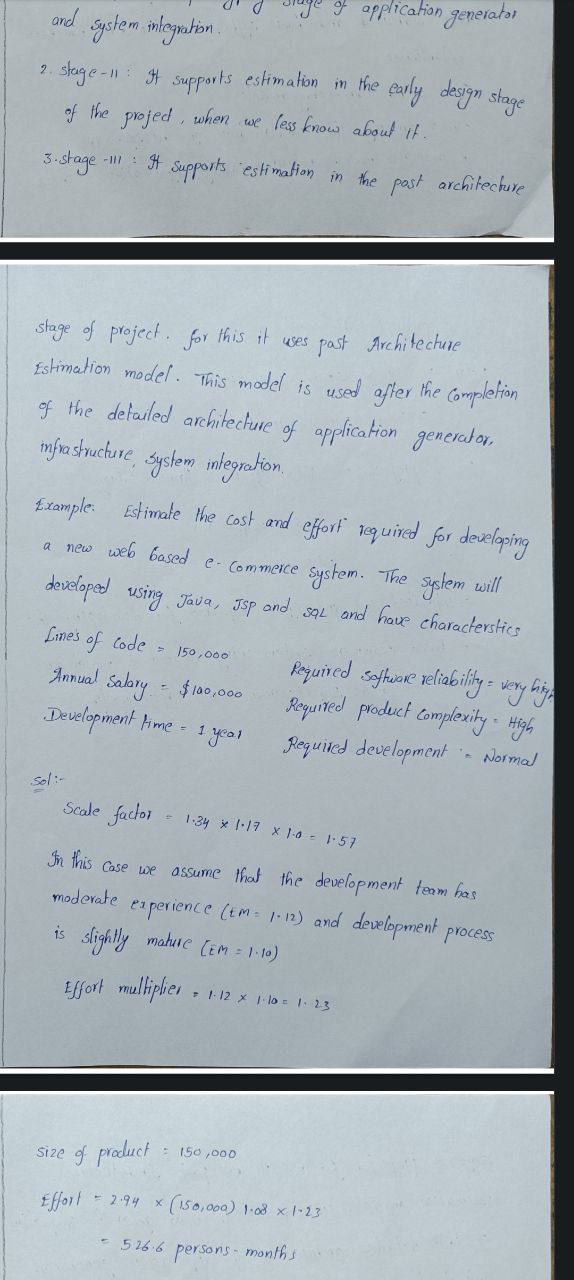 stage of application generator
and system integration.
2. stage-II : It supports estimation in the early design stage
of the project, when we less know about it.
3. stage -III : It supports estimation in the post architecture
stage of project. for this it uses past Architecture
Estimation model. This model is used after the completion
of the detailed architecture of application generator,
infrastructure, system integration.
Example: Estimate the cost and effort required for developing
a new web based e-commerce system. The system will
developed using Java, Jsp and SQL and have characterstics
Lines of code = 150,000
Annual Salary = $100,000
Development time = 1 year
Required software reliability = very high
Required product complexity = High
Required development = Normal
Sol:-
Scale factor = 1.34 x 1.17 x 1.0 = 1.57
In this case we assume that the development team has
moderate experience (EM = 1.12) and development process
is slightly mature (EM = 1.10)
Effort multiplier = 1.12 x 1.10 = 1.23
size of product = 150,000
Effort = 2.94 x (150,000) 1.08 x 1.23
= 526.6 persons-months